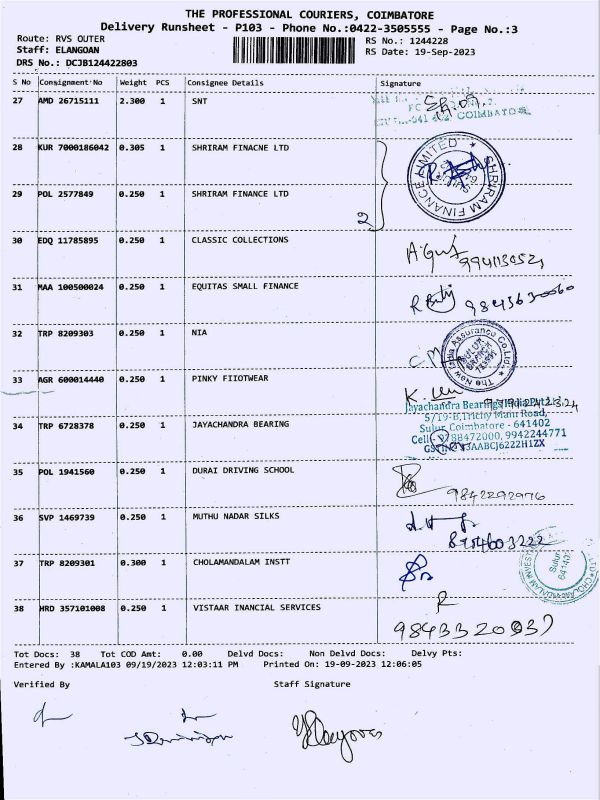 THE PROFESSIONAL COURIERS, COIMBATORE
Delivery Runsheet - P103 - Phone No.:0422-3505555 - Page No.:3
Route: RVS OUTER
RS No.: 1244228
Staff: ELANGOAN
RS Date: 19-Sep-2023
DRS No.: DCJB124422803
S No Consignment No Weight PCS Consignee Details Signature
27 AMD 26715111 2.300 1 SNT
COIMBATO
28 KUR 7000186042 0.305 1 SHRIRAM FINACNE LTD
SHRIRAM FINANCE LIMITED
29 POL 2577849 0.250 1 SHRIRAM FINANCE LTD
2
30 EDQ 11785895 0.250 1 CLASSIC COLLECTIONS
31 MAA 100500024 0.250 1 EQUITAS SMALL FINANCE
32 TRP 8209303 0.250 1 NIA
The New India Assurance Co.Ltd.
SULUR
BRANCH
33 AGR 600014440 0.250 1 PINKY FIIOTWEAR
Jayachandra Bearings India Pvt Ltd
5/719-B, Trichy Main Road,
34 TRP 6728378 0.250 1 JAYACHANDRA BEARING
Sulur, Coimbatore - 641402
Cell: 9788472000, 9942244771
35 POL 1941560 0.250 1 DURAI DRIVING SCHOOL
9842292976
36 SVP 1469739 0.250 1 MUTHU NADAR SILKS
8754603222
37 TRP 8209301 0.300 1 CHOLAMANDALAM INSTT
Sulur
641402
38 HRD 357101008 0.250 1 VISTAAR INANCIAL SERVICES
R
Tot Docs: 38 Tot COD Amt: 0.00 Delvd Docs: Non Delvd Docs: Delvy Pts:
Entered By :KAMALA103 09/19/2023 12:03:11 PM Printed On: 19-09-2023 12:06:05
Verified By Staff Signature